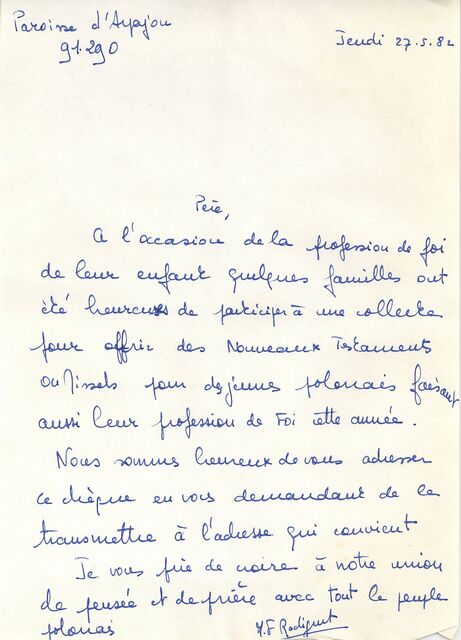 Paroisse d'Arpajon
91.290
Jeudi 27.5.82
Père,
A l'occasion de la profession de foi
de leur enfant quelques familles ont
été heureuses de participer à une collecte
pour offrir des Nouveaux Testaments
ou Missels pour des jeunes polonais faisant
aussi leur profession de Foi cette année.
Nous sommes heureux de vous adresser
ce chèque en vous demandant de le
transmettre à l'adresse qui convient
Je vous prie de croire à notre union
de pensée et de prière avec tout le peuple
polonais
M.F Radiguet